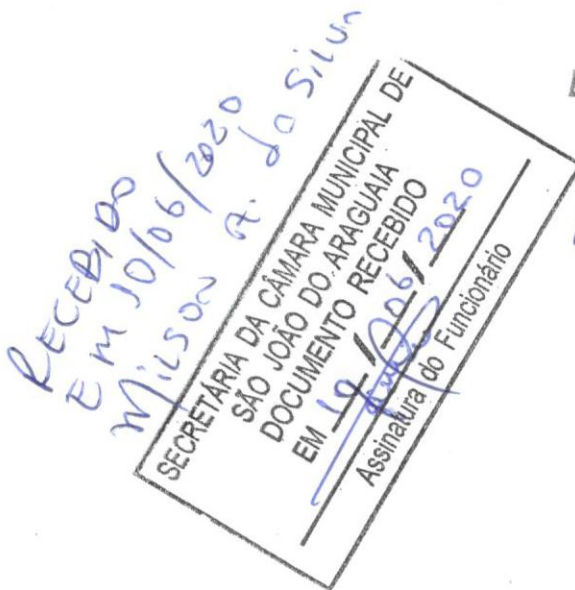 RECEBIDO
EM 10/06/2020
Milson A. da Silva
SECRETÁRIA DA CÂMARA MUNICIPAL DE
SÃO JOÃO DO ARAGUAIA
DOCUMENTO RECEBIDO
EM 10/06/2020
Assinatura do Funcionário